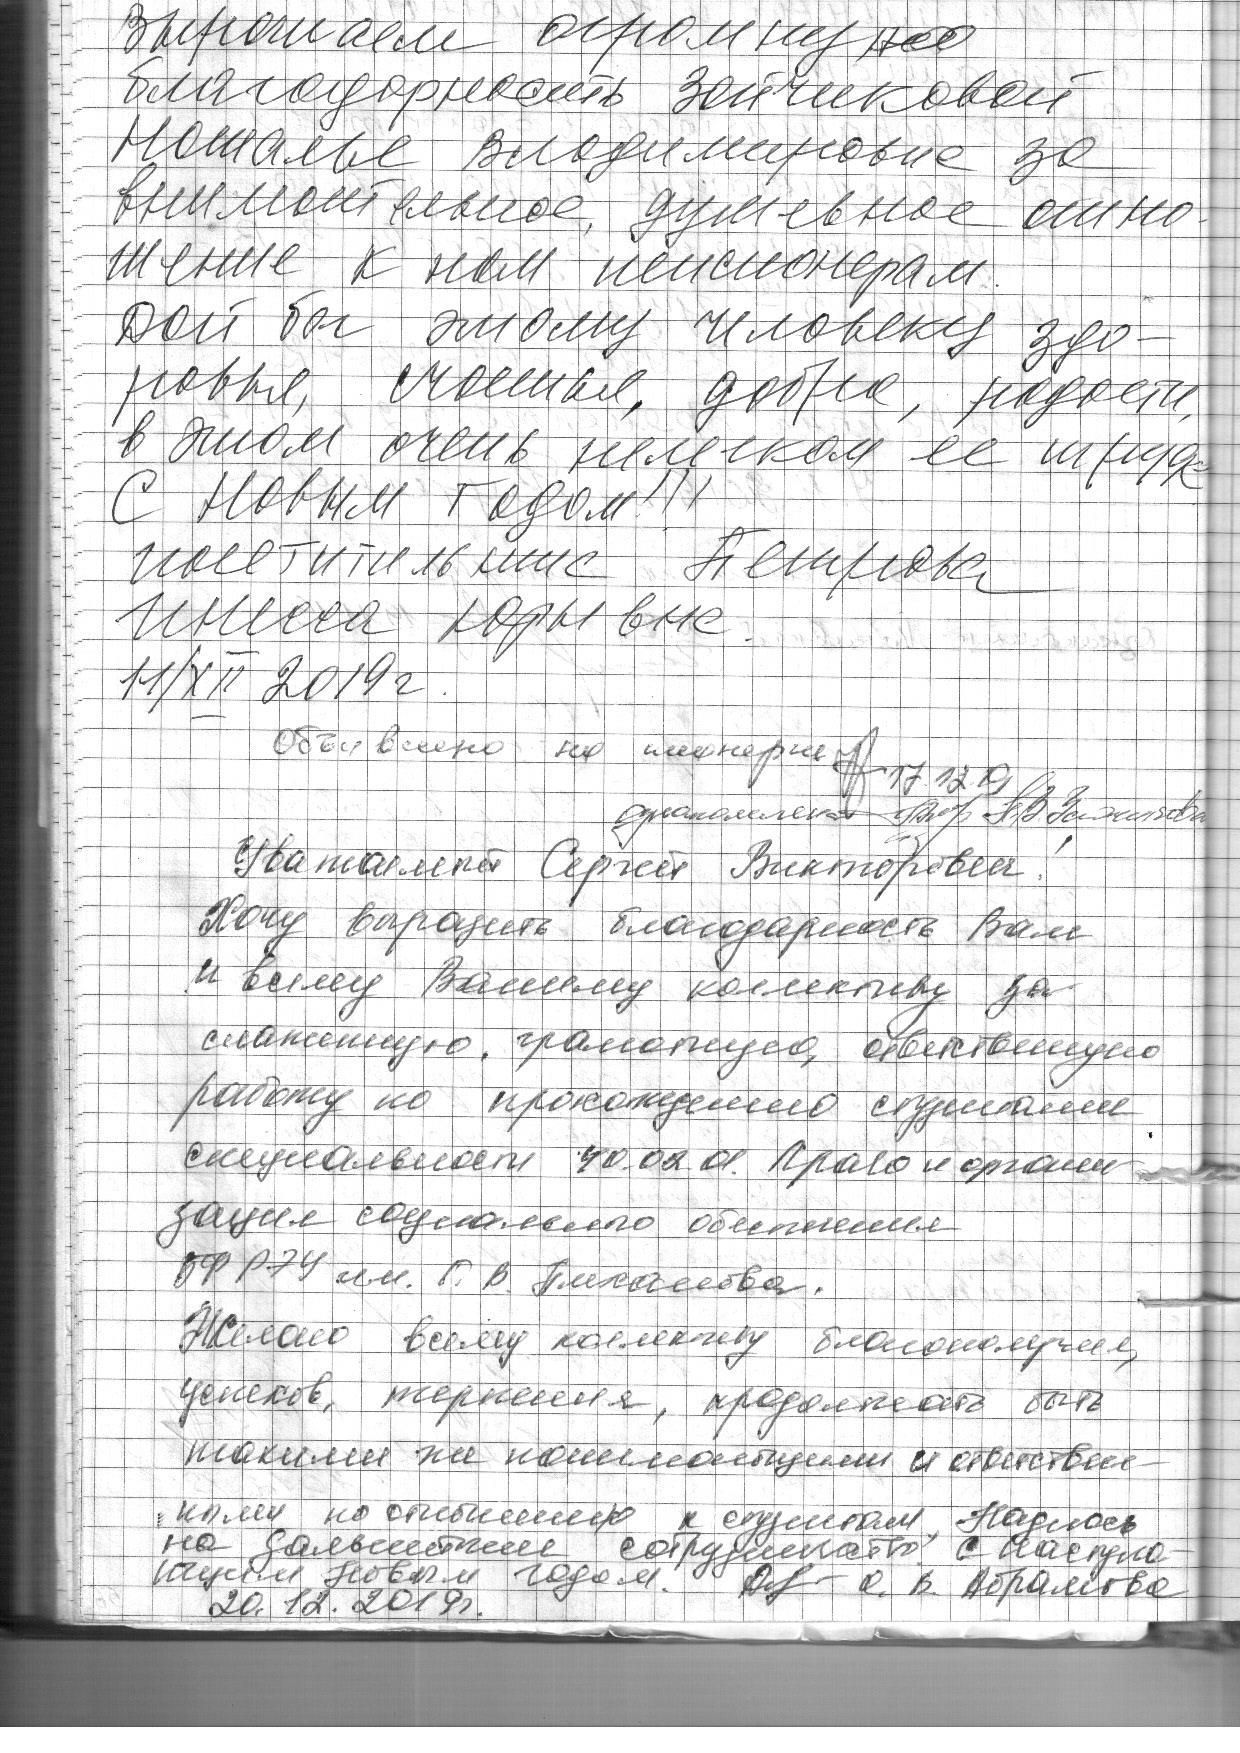 Выражаем огромную
благодарность Зайчиковой
Наталье Владимировне за
внимательное, душевное отно-
шение к нам пенсионерам.
Дай бог этому человеку здо-
ровья, счастья, добра, радости,
в этом очень нелегком ее труде
С Новым Годом!!!
посетительниц Петрова
Инесса Юрьевне.
11/XII 2019г.
Объявлено на планерке 17.12.19
ознакомлена Н.В. Зайчикова
Уважаемый Сергей Викторович!
Хочу выразить благодарность Вам
и всему Вашему коллективу за
слаженную, грамотную, ответственную
работу по прохождению студентами
специальности 40.02.01. Право и органи
зация социального обеспечения
РЭУ им. Г. В. Плеханова.
Желаю всему коллективу благополучия,
успехов, терпения, продолжать быть
такими же понимающими и ответствен-
ными по отношению к студентам. Надеюсь
на дальнейшее сотрудничество! С Наступа-
ющим Новым годом. О. В. Абрамова
20.12.2019г.